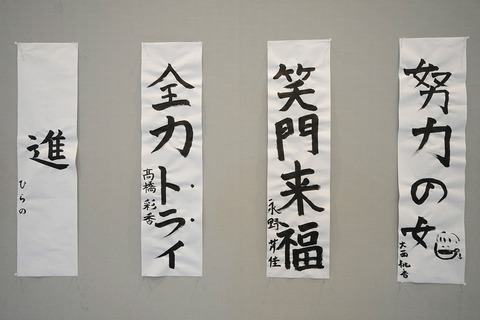 努力の女
大西桃香
笑門来福
永野芹佳
全力トライ
高橋彩香
進
ひらの